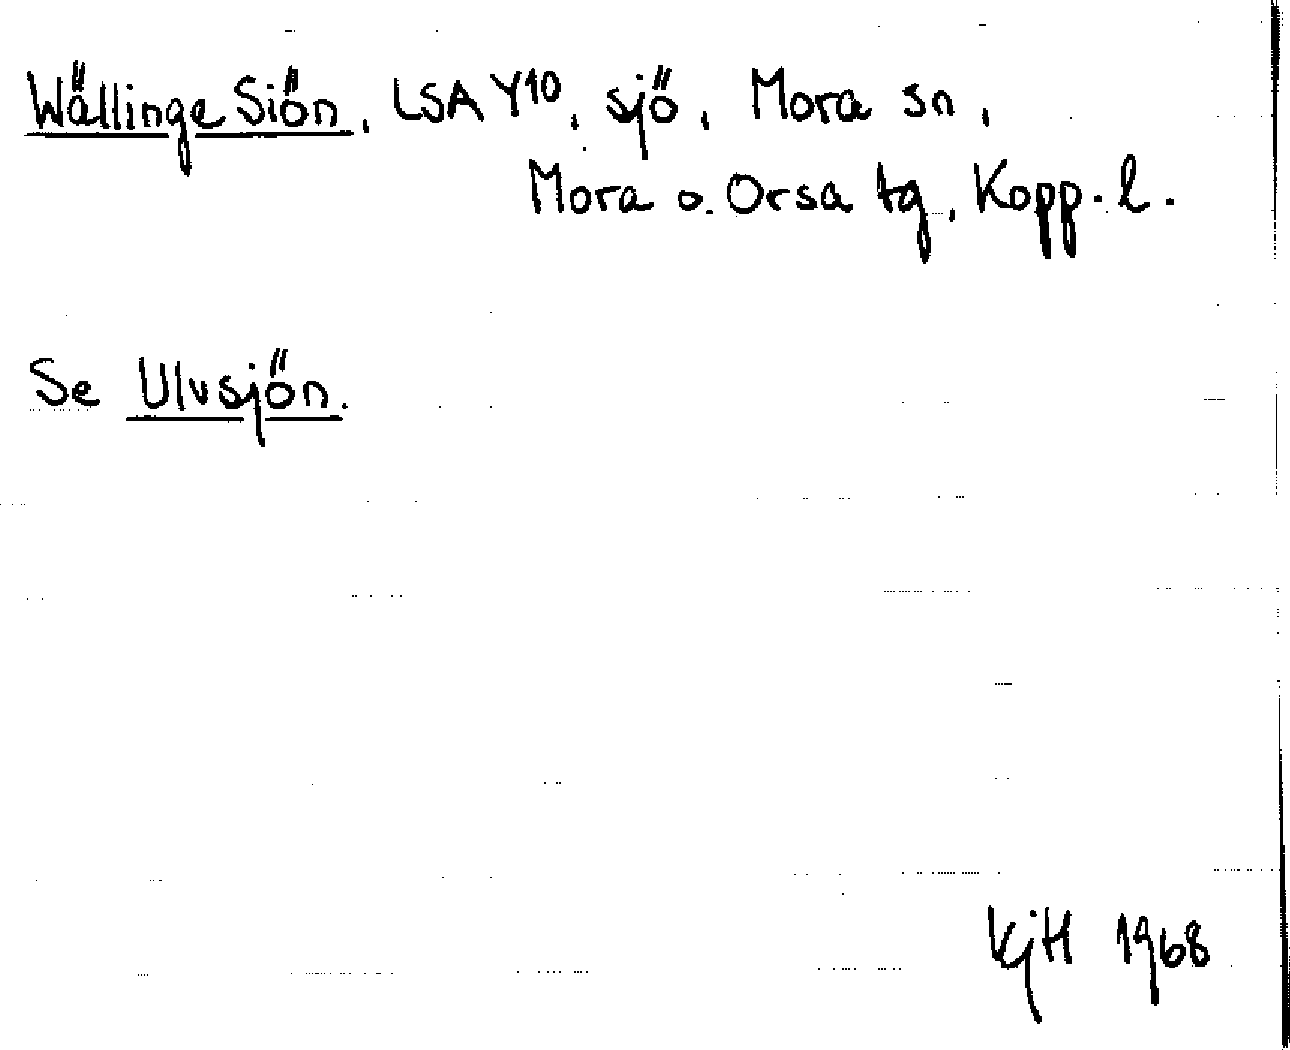 Wällinge Siön, LSA Y10, sjö, Mora sn,
Mora o. Orsa tg, Kopp. l.
Se Ulvsjön.
KjH 1968